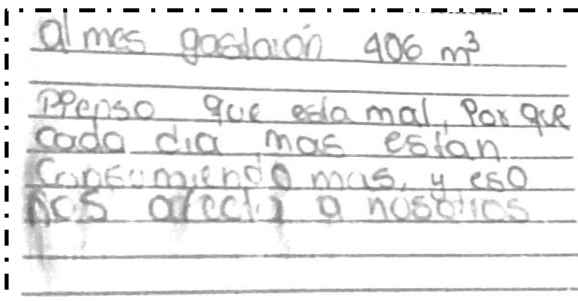 al mes gastaron 406 m³
PPenso que esta mal, Por que
cada dia mas estan
Consumiendo mas, y eso
nos afecta a nosotros